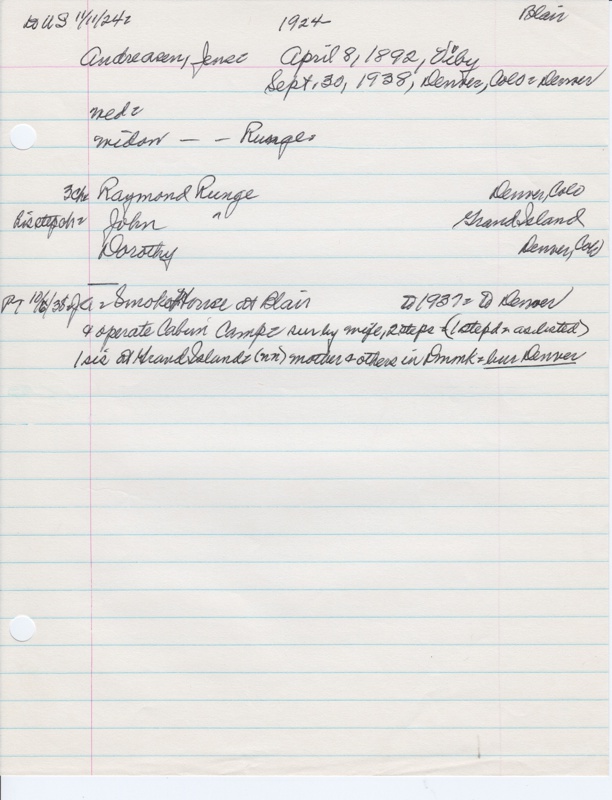 to US 11/11/24= 1924 Blair
Andreasen, Jens= April 8, 1892, Viby
Sept. 30, 1938, Denver, Colo = Denver
wed=
widow — - Runge=
3ch= Raymond Runge Denver, Colo
his stepch= John " Grand Island
Dorothy Denver, Colo
PT 10/6/38 = Smoke House at Blair to 1937 = to Denver
& operate Cabin Camp = sur by wife, 2 steps = (1 stepd = as listed)
1 sis at Grand Island = (nn) mother & others in Dnmk = bur Denver